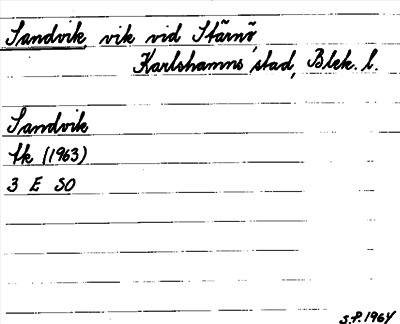 Sandvik, vik vid Stärnö,
Karlshamns stad, Blek. l.
Sandvik
Ek (1963)
3 E SO
S.P. 1964